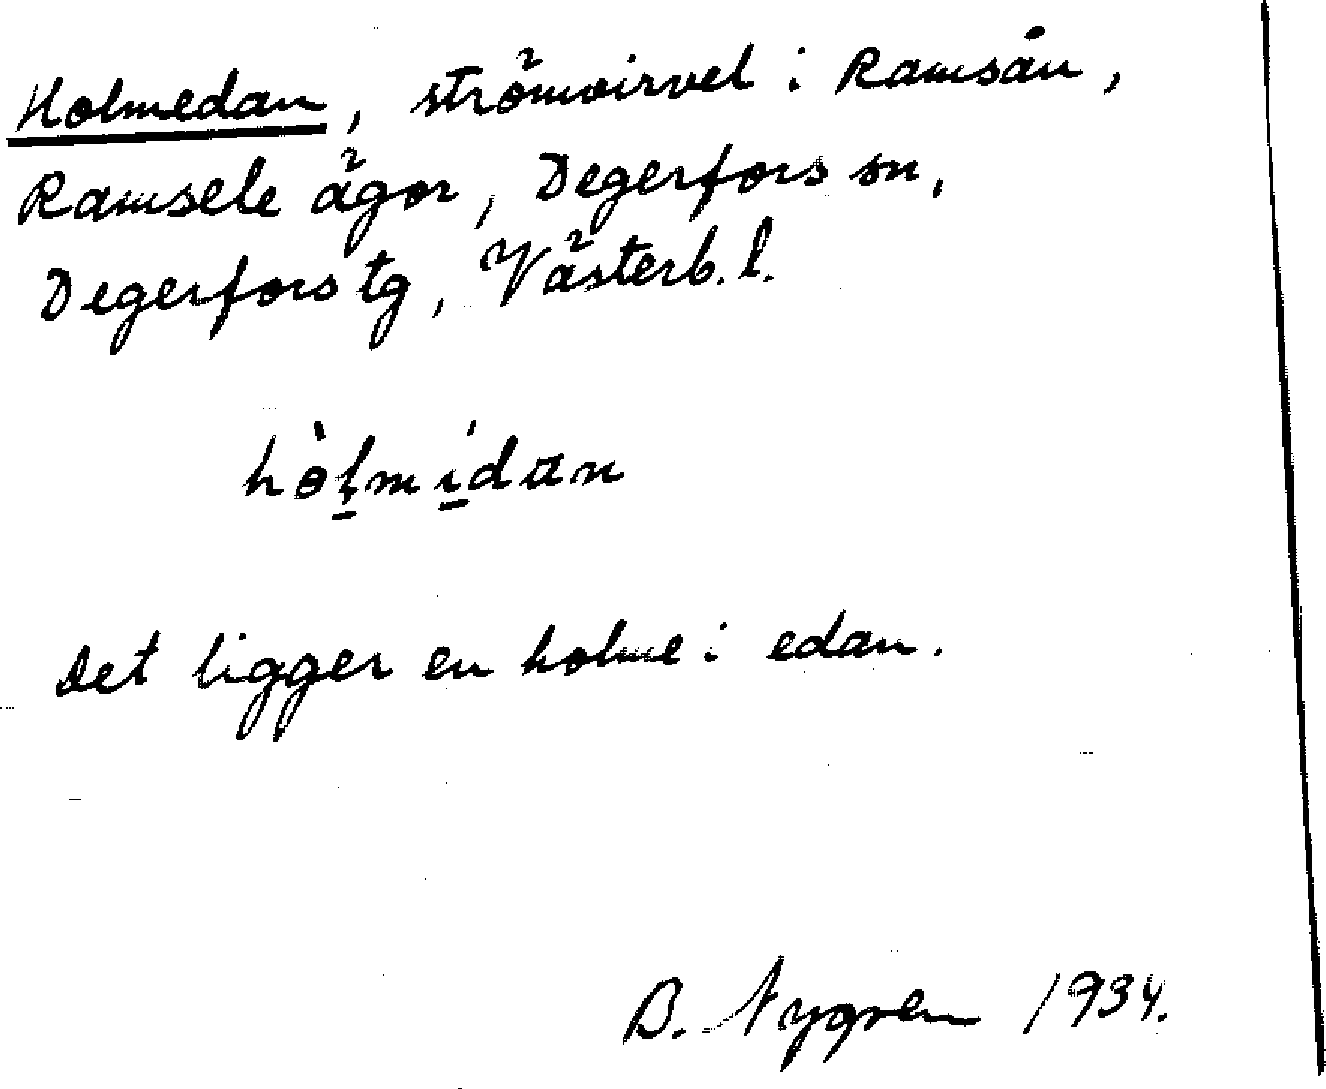 Holmedan, strömvirvel i Ramsån,
Ramsele ägor, Degerfors sn,
Degerfors tg, Västerb. l.
hòl̠mí̠dan
Det ligger en holme i edan.
B. Nygren 1934.